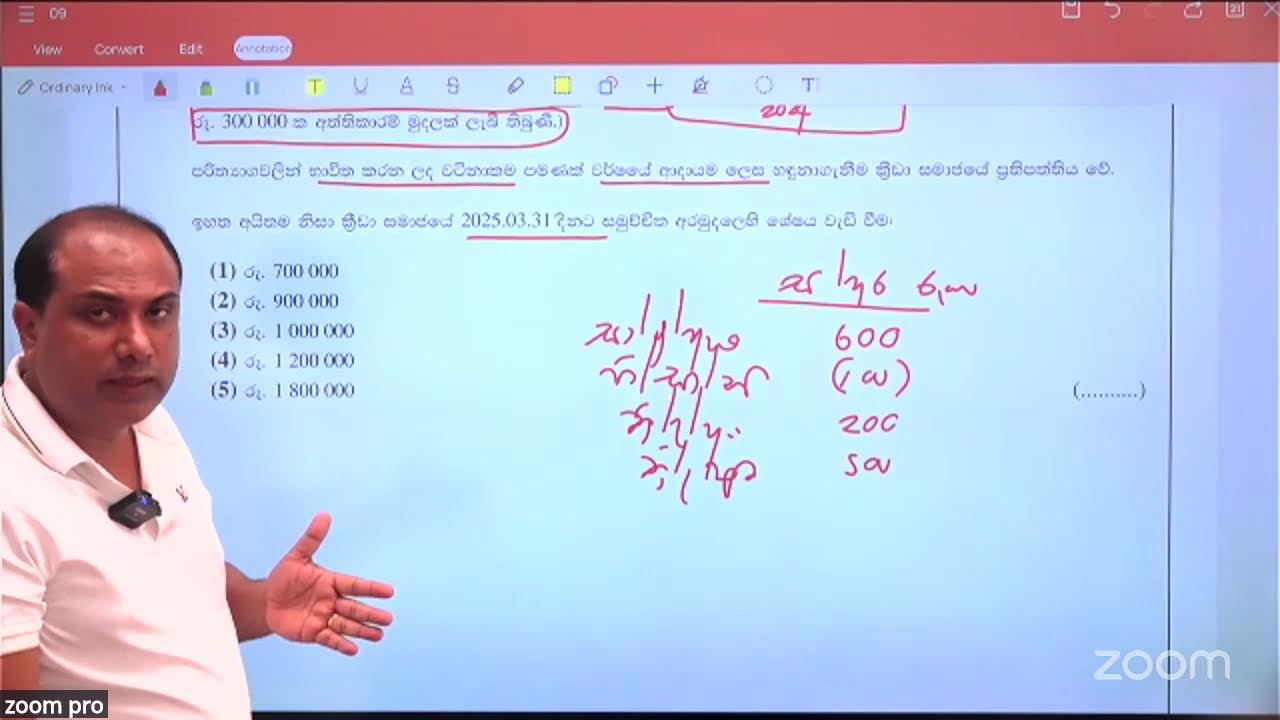 09
View Convert Edit Annotation
Ordinary Ink
204
රු. 300 000 ක අත්තිකාරම් මුදලක් ලැබී තිබුණි.)
පරිත්‍යාගවලින් භාවිත කරන ලද වටිනාකම පමණක් වර්ෂයේ ආදායම ලෙස හඳුනාගැනීම ක්‍රීඩා සමාජයේ ප්‍රතිපත්තිය වේ.
ඉහත අයිතම නිසා ක්‍රීඩා සමාජයේ 2025.03.31 දිනට සමුච්චිත අරමුදලෙහි ශේෂය වැඩි වීම:
(1) රු. 700 000
(2) රු. 900 000
(3) රු. 1 000 000
(4) රු. 1 200 000
(5) රු. 1 800 000
(..........)
600
200
zoom
zoom pro